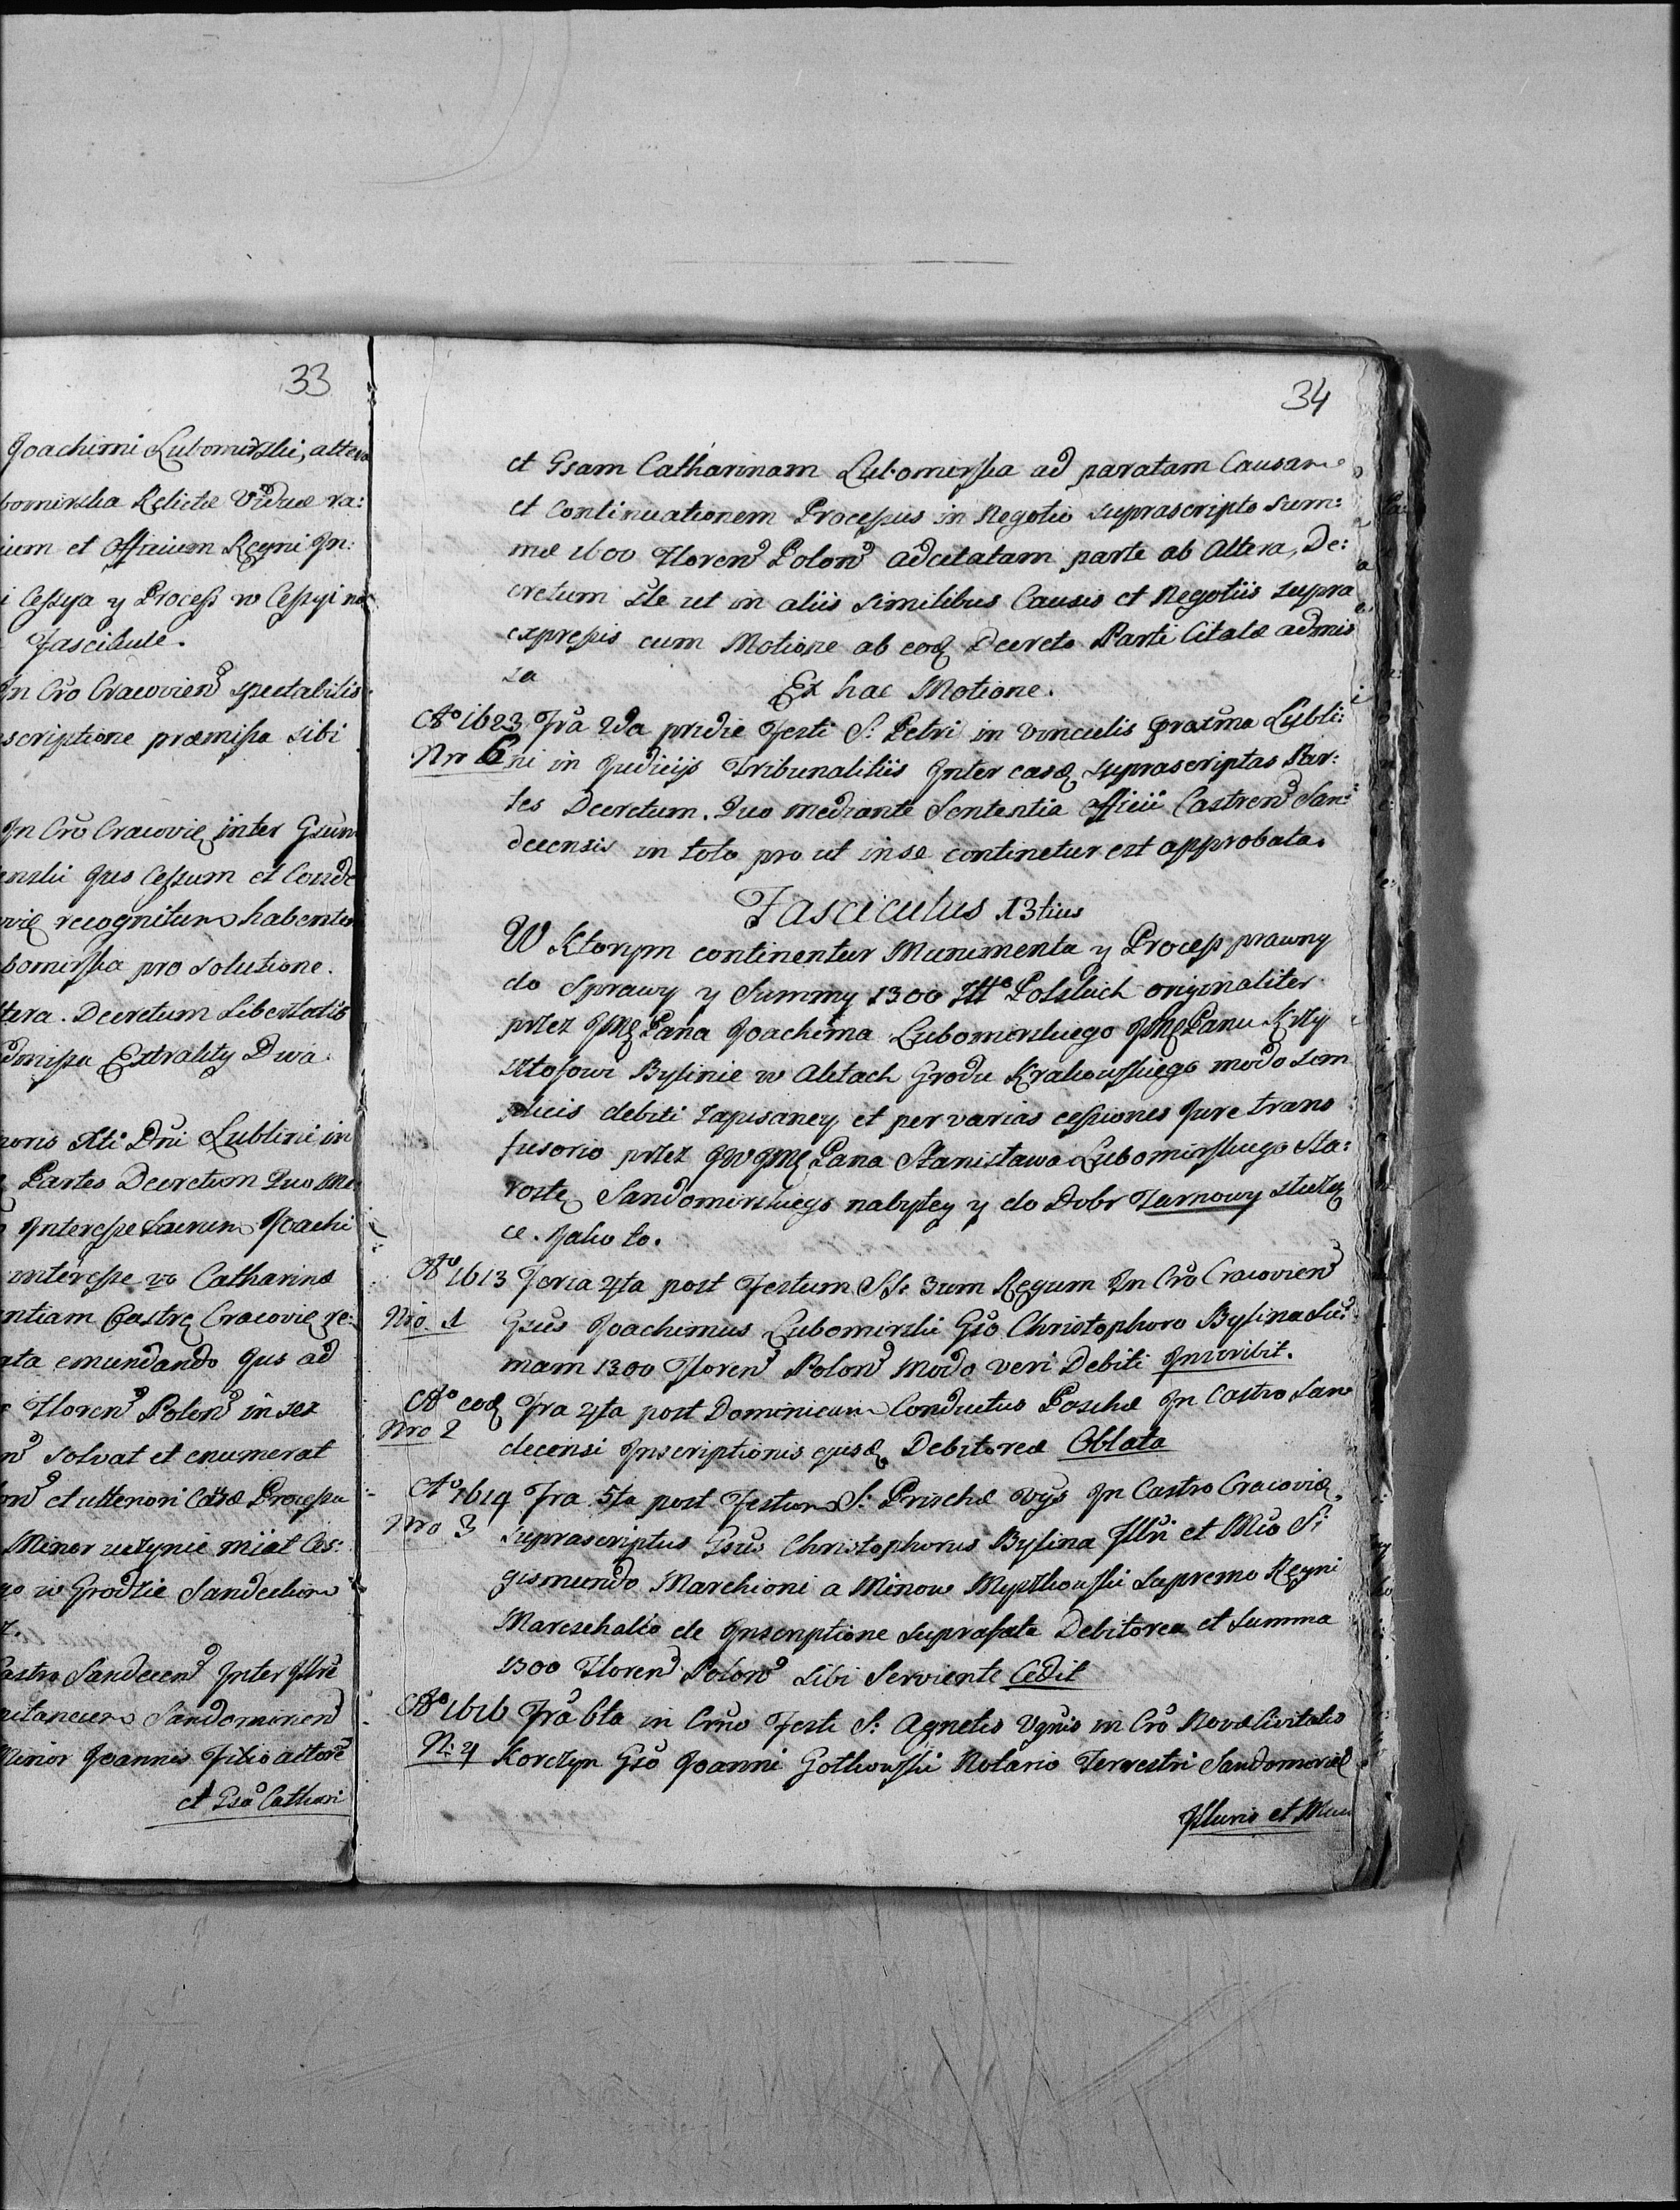 33
Joachimi Lubomirski, altera
bomirska Relictæ Viduæ ra:
ium et Officium Regni In:
i Cessya y Process w Cessyi na
Fascikule.
In Cro Cracovien spectabilis
scriptione præmissa sibi
In Cro Cracoviē inter Gsum
enski Jus Cessum et Conde
viē recognitum habentem
bomirska pro solutione.
ltera. Decretum Libertatis
dmissa Extrakty Dwa.
noris Xti Dni Lublini in
Partes Decretum Quo Me
Interesse suum Joachi
interesse vo Catharinæ
ntiam Castrę Cracoviē re:
ata emundando Jus ad
Floren Polon in sex
solvat et enumerat
et ulteriori Causæ Processu
Minor uczynić miał Ces:
go w Grodzie Sandeckim
Castro Sandecen Inter Illre
pitaneum Sandomirien
Minor Joannis Filio actore
et Gsa Cathari
34
et Gsam Catharinam Lubomirska ad paratam Causam
et Continuationem Processus in Negotio suprascripto Sum:
mæ 1600 Floren Polon adcitatam parte ab Altera, De:
cretum Ite ut in aliis similibus Causis et Negotiis supra
expressis cum Motione ab eoq Decreto Parti Citatæ admis
sa Ex hac Motione.
Ao 1623 Fra 2da pridie Festi S: Petri in vinculis proxima Lubli:
Nro 6 ni in Judicijs Tribunalitiis Inter easq suprascriptas Par:
tes Decretum. Quo mediante Sententia Officii Castren San:
decensis in toto pro ut in se continetur est approbata.
Fasciculus 13tius
W Ktorym continentur Munimenta y Process prawny
do Sprawy y Summy 1300 Złto Polskich originaliter
przez JMę Pana Joachima Lubomirskiego JMę Panu Krzy
sztofowi Bylinie w Aktach Grodu Krakowskiego modo sim
plicis debiti zapisaney et per varias cessiones Jure trans
fusorio przez JW JMę Pana Stanisława Lubomirskiego Sta:
rostę Sandomirskiego nabytey y do Dobr Tarnowy służą
ce. Jako to.
Ao 1613 Feria 4ta post Festum SS: 3um Regum In Cro Cracovien
Nro. 1 Gsus Joachimus Lubomirski Gso Christophoro Bylina Su:
mam 1300 Floren Polon Modo veri Debiti Inscribit.
Ao eoq Fra 4ta post Dominicam Conductus Paschæ In Castro San
Nro 2 decensi Inscriptionis ejusq Debitoreæ Oblata
Ao 1614 Fra 5ta post Festum S: Priscæ Vgs In Castro Cracoviæ
Nro 3 suprascriptus Gsus Christophorus Bylina Illri et Mco Si
gismundo Marchioni a Mirow Myszkowski Supremo Regni
Mareschalco de Inscriptione suprafata Debitorea et Summa
1300 Floren Polon sibi Serviente Cedit
Ao 1616 Fra 6ta in Crno Festi S: Agnetis Vgnis in Cro Novæ Civitatis
N: 4 Korczyn Gso Joanni Gotkowski Notario Terrestri Sandomiriæ
Illuris et Mun